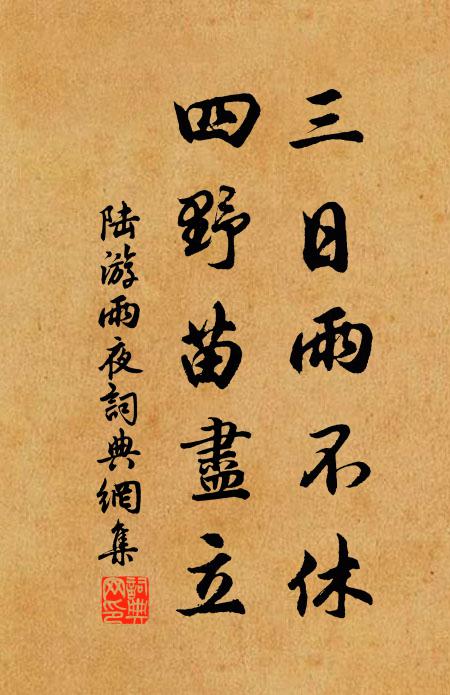 三日雨不休
四野苗盡立
陸游雨夜詞典網集
詞典
网印